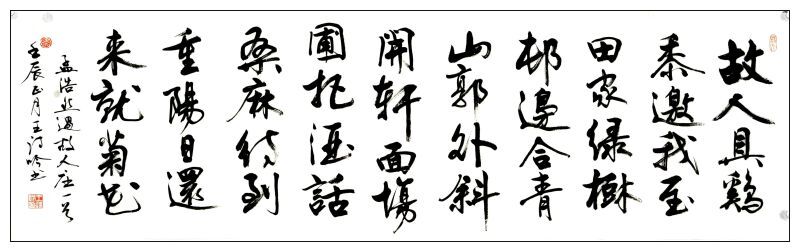 故人具鷄
黍邀我至
田家緑樹
邨邊合青
山郭外斜
開軒面場
圃把酒話
桑麻待到
重陽日還
来就菊花
孟浩然過故人庄一首
壬辰正月王